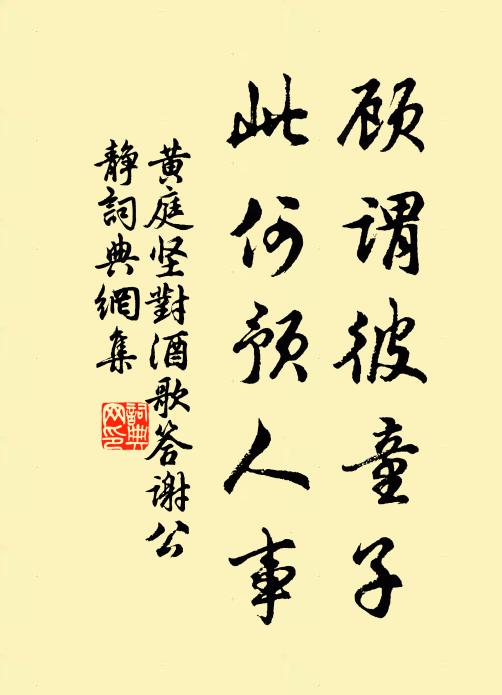 顾谓彼童子
此何预人事
黄庭坚對酒歌答谢公
静詞典網集
詞典
网印